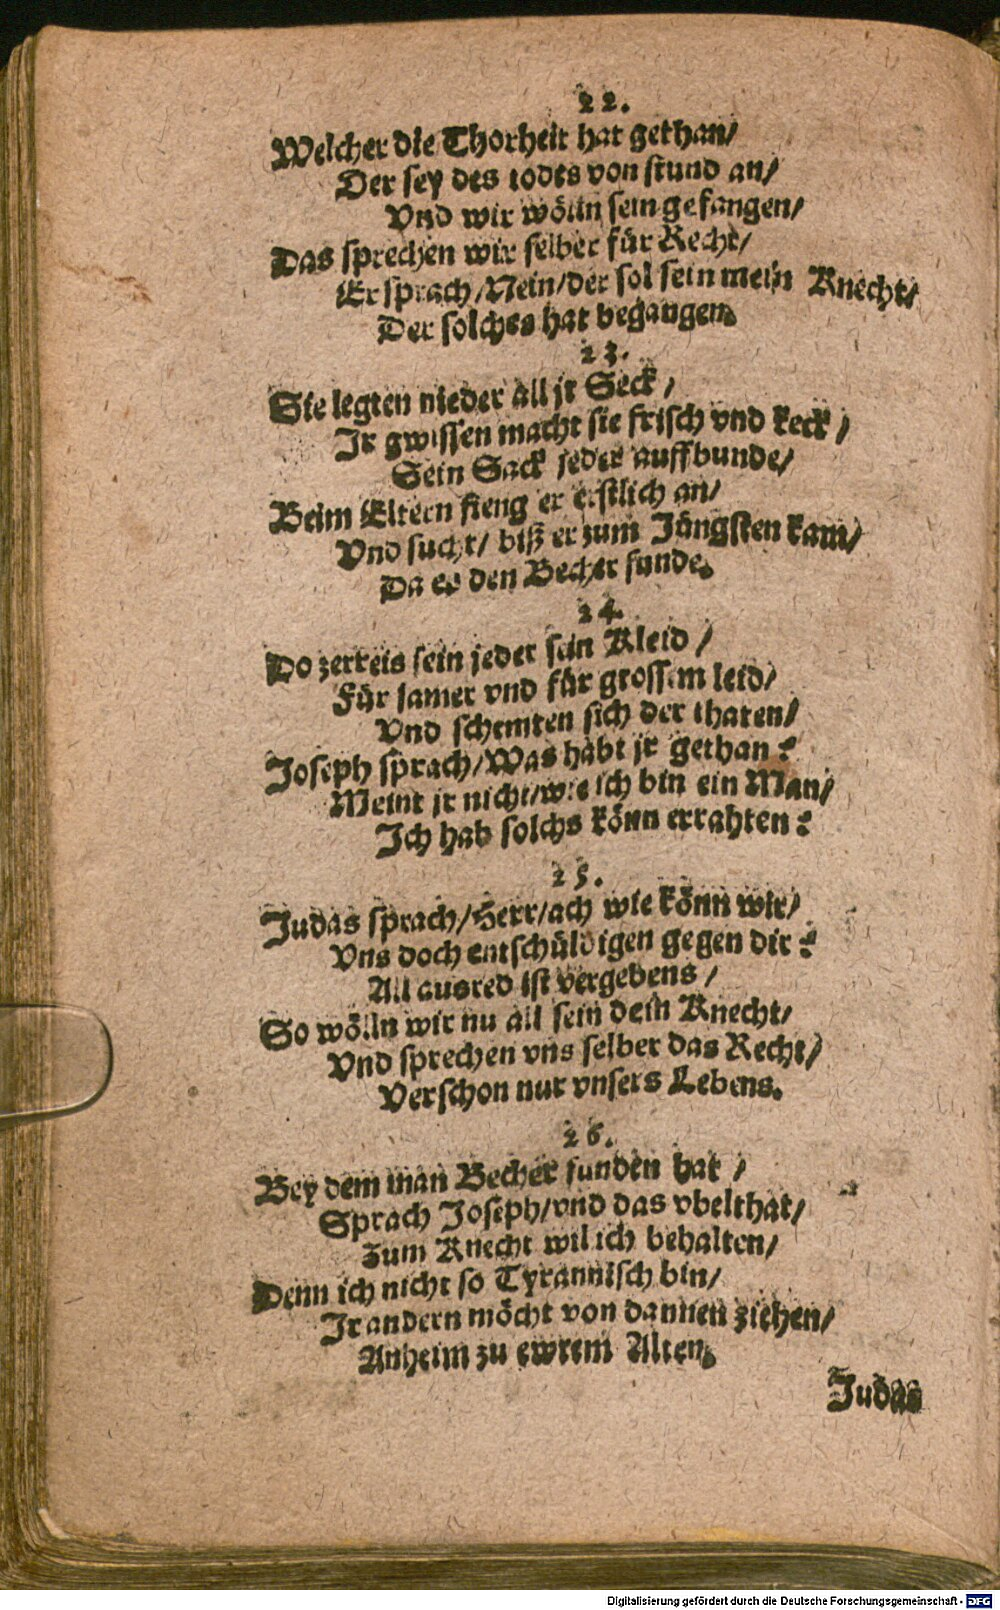 22.
Welcher die Thorheit hat gethan/
Der sey des todes von stund an/
Vnd wir wölln sein gefangen/
Das sprechen wir selber für Recht/
Er sprach/Nein/der sol sein mein Knecht/
Der solches hat begangen.
23.
Sie legten nieder all jr Seck/
Jr gwissen macht sie frisch vnd keck/
Sein Sack jeder auffbunde/
Beim Eltern fieng er erstlich an/
Vnd sucht/ biß er zum Jüngsten kam/
Da er den Becher funde.
24.
Do zerreis sein jeder sein Kleid/
Für jamer vnd für grossem leid/
Vnd schemten sich der thaten/
Joseph sprach/Was habt jr gethan?
Meint jr nicht/wie ich bin ein Man/
Ich hab solchs könn errahten?
25.
Judas sprach/Herr/ach wie könn wir/
Vns doch entschüldigen gegen dir?
All ausred ist vergebens/
So wölln wir nu all sein dein Knecht/
Vnd sprechen vns selber das Recht/
Verschon nur vnsers Lebens.
26.
Bey dem man Becher funden hat/
Sprach Joseph/vnd das vbelthat/
Zum Knecht wil ich behalten/
Denn ich nicht so Tyrannisch bin/
Jr andern möcht von dannen ziehen/
Anheim zu ewrem Alten.
Judas
Digitalisierung gefördert durch die Deutsche Forschungsgemeinschaft - DFG